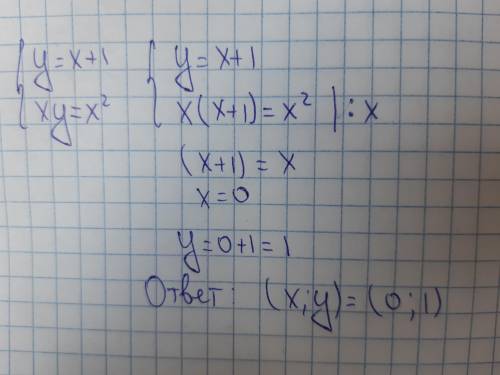 { y = x+1 { y = x+1
{ xy = x² { x(x+1) = x² | : x
(x+1) = x
x = 0
y = 0+1 = 1
Ответ: (x; y) = (0; 1)